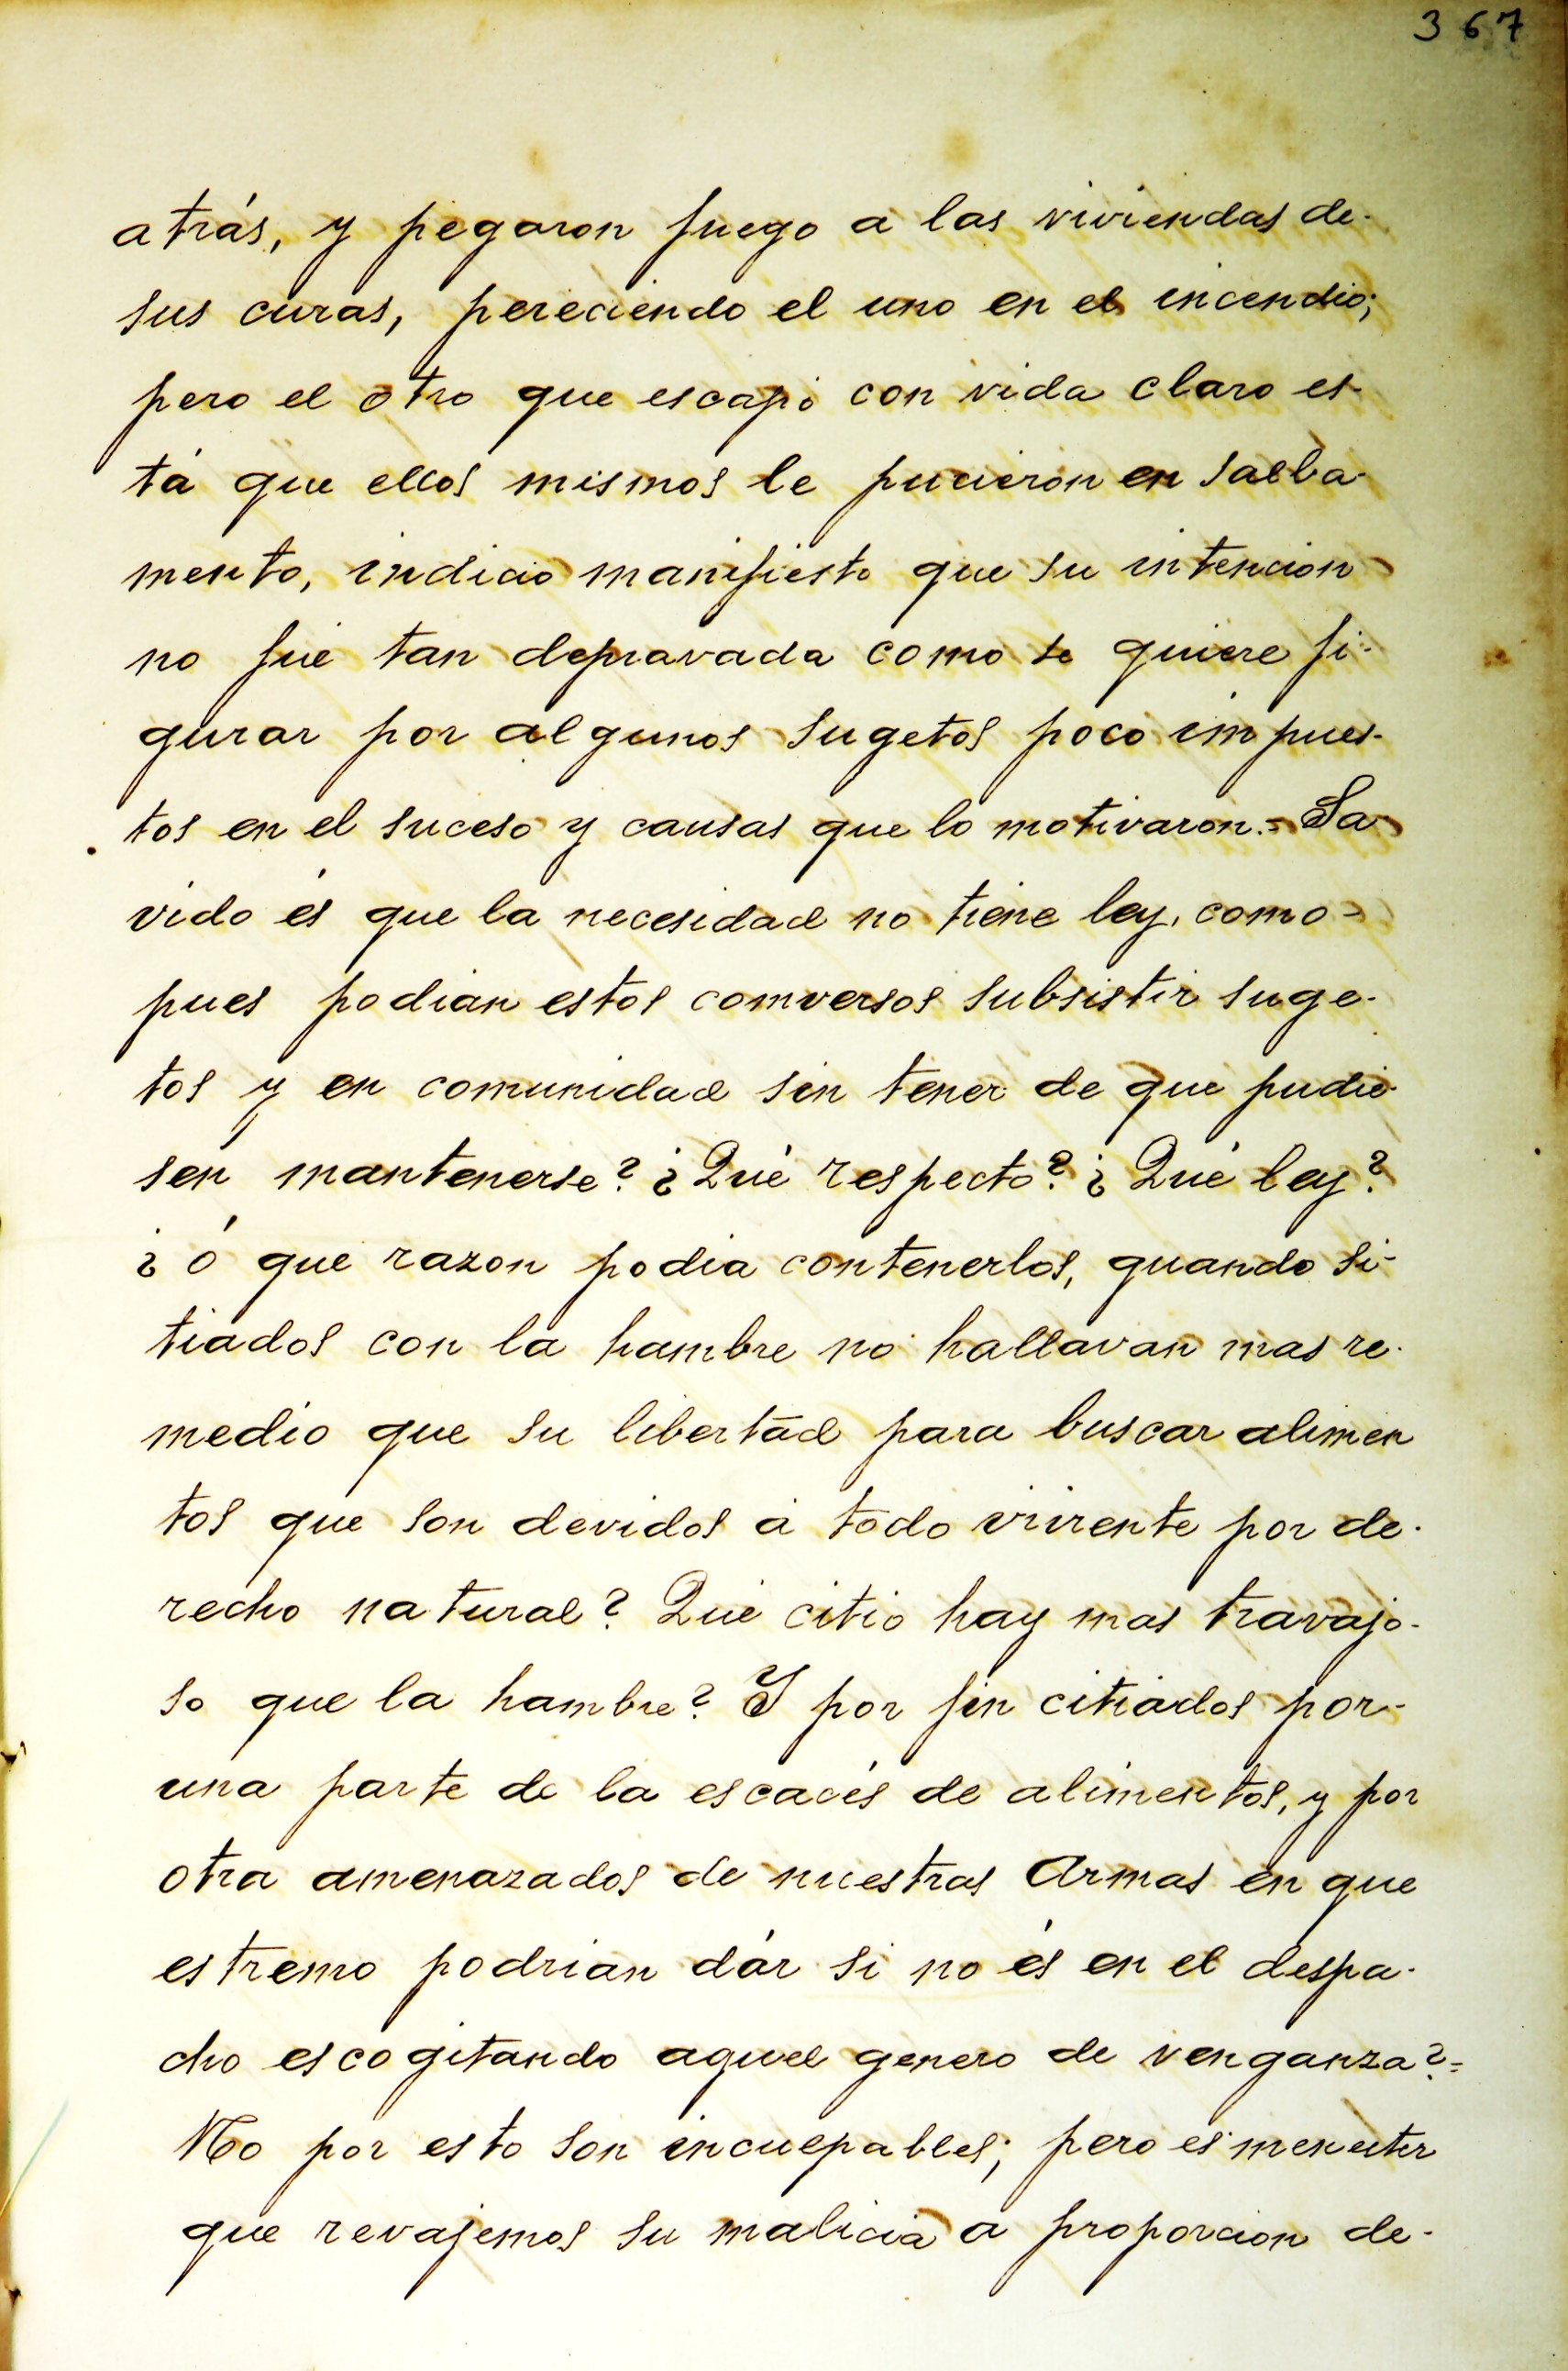 367
atrás, y pegaron fuego a las viviendas de-
sus curas, pereciendo el uno en el incendio;
pero el otro que escapó con vida claro es-
tá que ellos mismos le pucieron en salba-
mento, indicio manifiesto que su intencion
no fué tan depravada como se quiere fi-
gurar por algunos sugetos poco impues-
tos en el suceso y causas que lo motivaron.= Sa
vido és que la necesidad no tiene ley, como=
pues podian estos comversos subsistir suge-
tos y en comunidad sin tener de que pudie-
sen mantenerse? ¿Qué respecto? ¿Qué ley?
¿ó que razon podia contenerlos, quando si-
tiados con la hambre no hallavan mas re-
medio que su libertad para buscar alimen
tos que son devidos á todo vivente por de-
recho natural? Qué citio hay mas travajo-
so que la hambre? Y por fin citiados por-
una parte de la escacés de alimentos, y por
otra amenazados de nuestras Armas en que
estremo podrian dár si no és en el despa-
cho escogitando aquel genero de venganza?=
No por esto son inculpables; pero es menester
que revajemos su malicia a proporcion de-